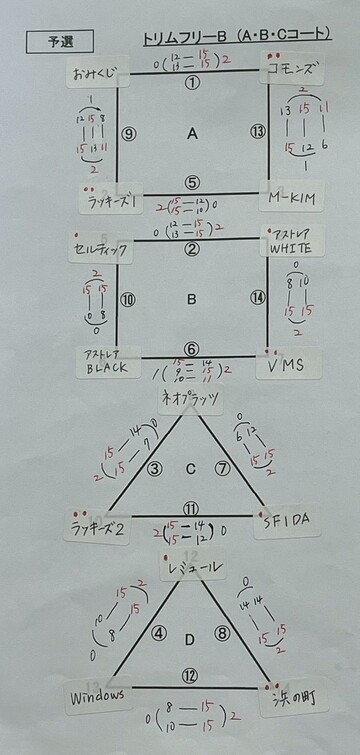 予選 トリムフリーB (A・B・Cコート)
おみくじ 0(12-15 13-15)2 コモンズ
①
1
12 15 8
15 13 11
2
⑨ A ⑬
2
13 15 11
15 12 6
1
⑤
ラッキーズ1 2(15-12 15-10)0 M-KIM
セルティック 0(12-15 13-15)2 アストレア WHITE
②
2
15 15
10 8
0
⑩ B ⑭
0
8 10
15 15
2
⑥
アストレア BLACK 1(15-14 9-15 10-11)2 VMS
ネオプラッツ
15-14
2( 15-7 )0
③ C ⑦
0
6 12
15 15
2
⑪
ラッキーズ2 2(15-14 15-12)0 SFIDA
レジュール
10-15
0( 8-15 )2
④ D ⑧
0
14 14
15 15
2
⑫
Windows 0(8-15 10-15)2 浜の町